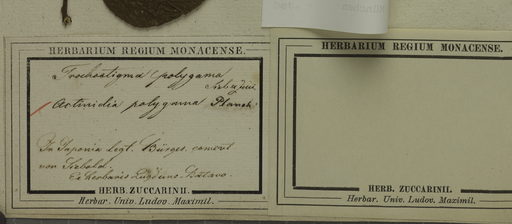 HERBARIUM REGIUM MONACENSE.
Trochostigma polygama
Sieb & Zucc
Actinidia polygama Planch
In Japonia legt. Bürger, comm
von Siebold.
Ex herbario Lugduno Batavo.
HERB. ZUCCARINII.
Herbar. Univ. Ludov. Maximil.
HERBARIUM REGIUM MONACENSE.
HERB. ZUCCARINII.
Herbar. Univ. Ludov. Maximil.